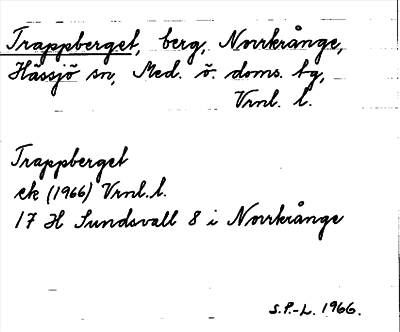 Trappberget, berg, Norrkrånge,
Hässjö sn, Med. ö. doms. tg,
Vrnl. l.
Trappberget
ek (1966) Vrnl. l.
17 H Sundsvall 8 i Norrkrånge
S.P.-L. 1966.